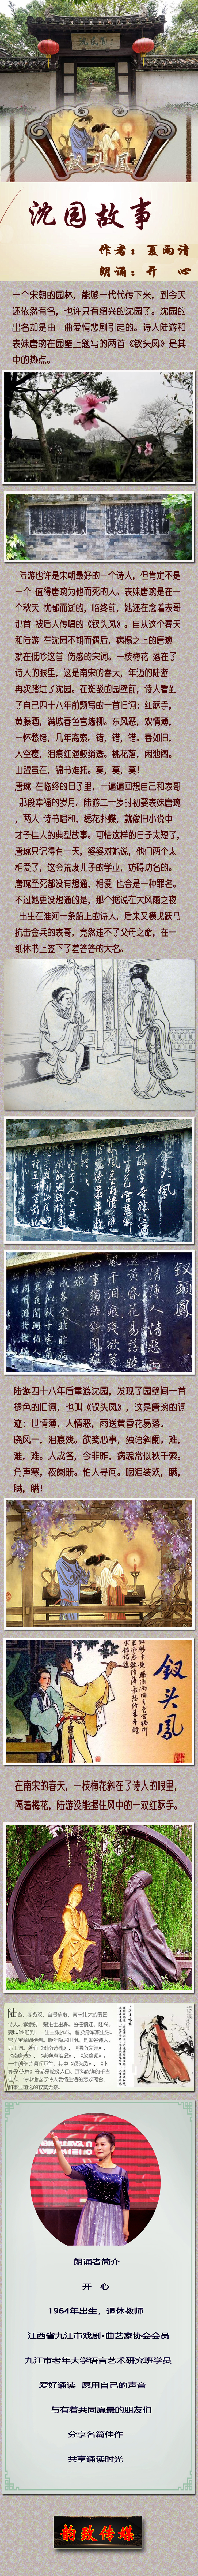 沈园故事
作者：夏雨清
朗诵：开 心
一个宋朝的园林，能够一代代传下来，到今天
还依然有名，也许只有绍兴的沈园了。沈园的
出名却是由一曲爱情悲剧引起的。诗人陆游和
表妹唐琬在园壁上题写的两首《钗头凤》是其
中的热点。
陆游也许是宋朝最好的一个诗人，但肯定不是
一个 值得唐琬为他而死的人。表妹唐琬是在一
个秋天 忧郁而逝的，临终前，她还在念着表哥
那首 被后人传唱的《钗头凤》。自从这个春天
和陆游 在沈园不期而遇后，病榻之上的唐琬
就在低吟这首 伤感的宋词。一枝梅花 落在了
诗人的眼里，这是南宋的春天，年迈的陆游
再次踏进了沈园。在斑驳的园壁前，诗人看到
了自己四十八年前题写的一首旧词：红酥手，
黄藤酒，满城春色宫墙柳。东风恶，欢情薄，
一怀愁绪，几年离索。错，错，错。春如旧，
人空瘦，泪痕红浥鲛绡透。桃花落，闲池阁。
山盟虽在，锦书难托。莫，莫，莫！
唐琬 在临终的日子里，一遍遍回想自己和表哥
那段幸福的岁月。陆游二十岁时初娶表妹唐琬
，两人 诗书唱和，绣花扑蝶，就像旧小说中
才子佳人的典型故事。可惜这样的日子太短了，
唐琬只记得有一天，婆婆对她说，他们两个太
相爱了，这会荒废儿子的学业，妨碍功名的。
唐琬至死都没有想通，相爱 也会是一种罪名。
不过她更没想通的是，那个据说在大风雨之夜
出生在淮河一条船上的诗人，后来又横戈跃马
抗击金兵的表哥，竟然违不了父母之命，在一
纸休书上签下了羞答答的大名。
陆游四十八年后重游沈园，发现了园壁间一首
褪色的旧词，也叫《钗头凤》，这是唐琬的词
迹：世情薄，人情恶，雨送黄昏花易落。
晓风干，泪痕残。欲笺心事，独语斜阑。难，
难，难。人成各，今非昨，病魂常似秋千索。
角声寒，夜阑珊。怕人寻问。咽泪装欢，瞒，
瞒，瞒！
钗头凤
在南宋的春天，一枝梅花斜在了诗人的眼里，
隔着梅花，陆游没能握住风中的一双红酥手。
朗诵者简介
开 心
1964年出生，退休教师
江西省九江市戏剧·曲艺家协会会员
九江市老年大学语言艺术研究班学员
爱好诵读 愿用自己的声音
与有着共同愿景的朋友们
分享名篇佳作
共享诵读时光
韵致传媒